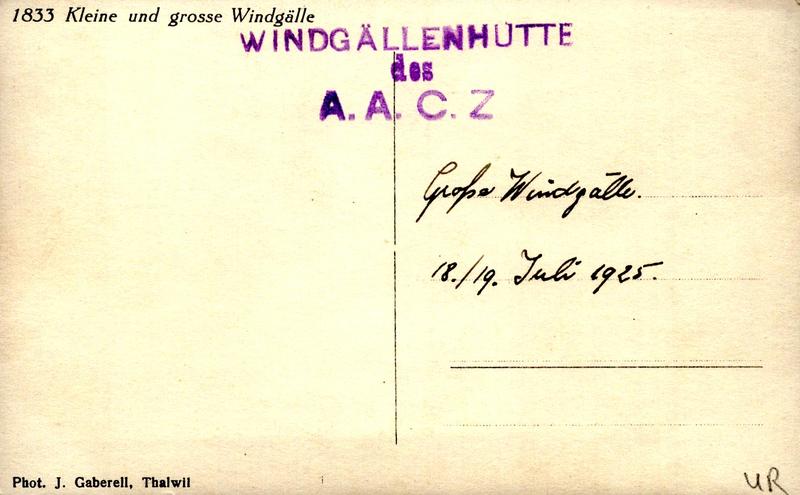 1833 Kleine und grosse Windgälle
WINDGÄLLENHÜTTE
des
A. A. C. Z
Große Windgälle.
18./19. Juli 1925.
Phot. J. Gaberell, Thalwil
UR